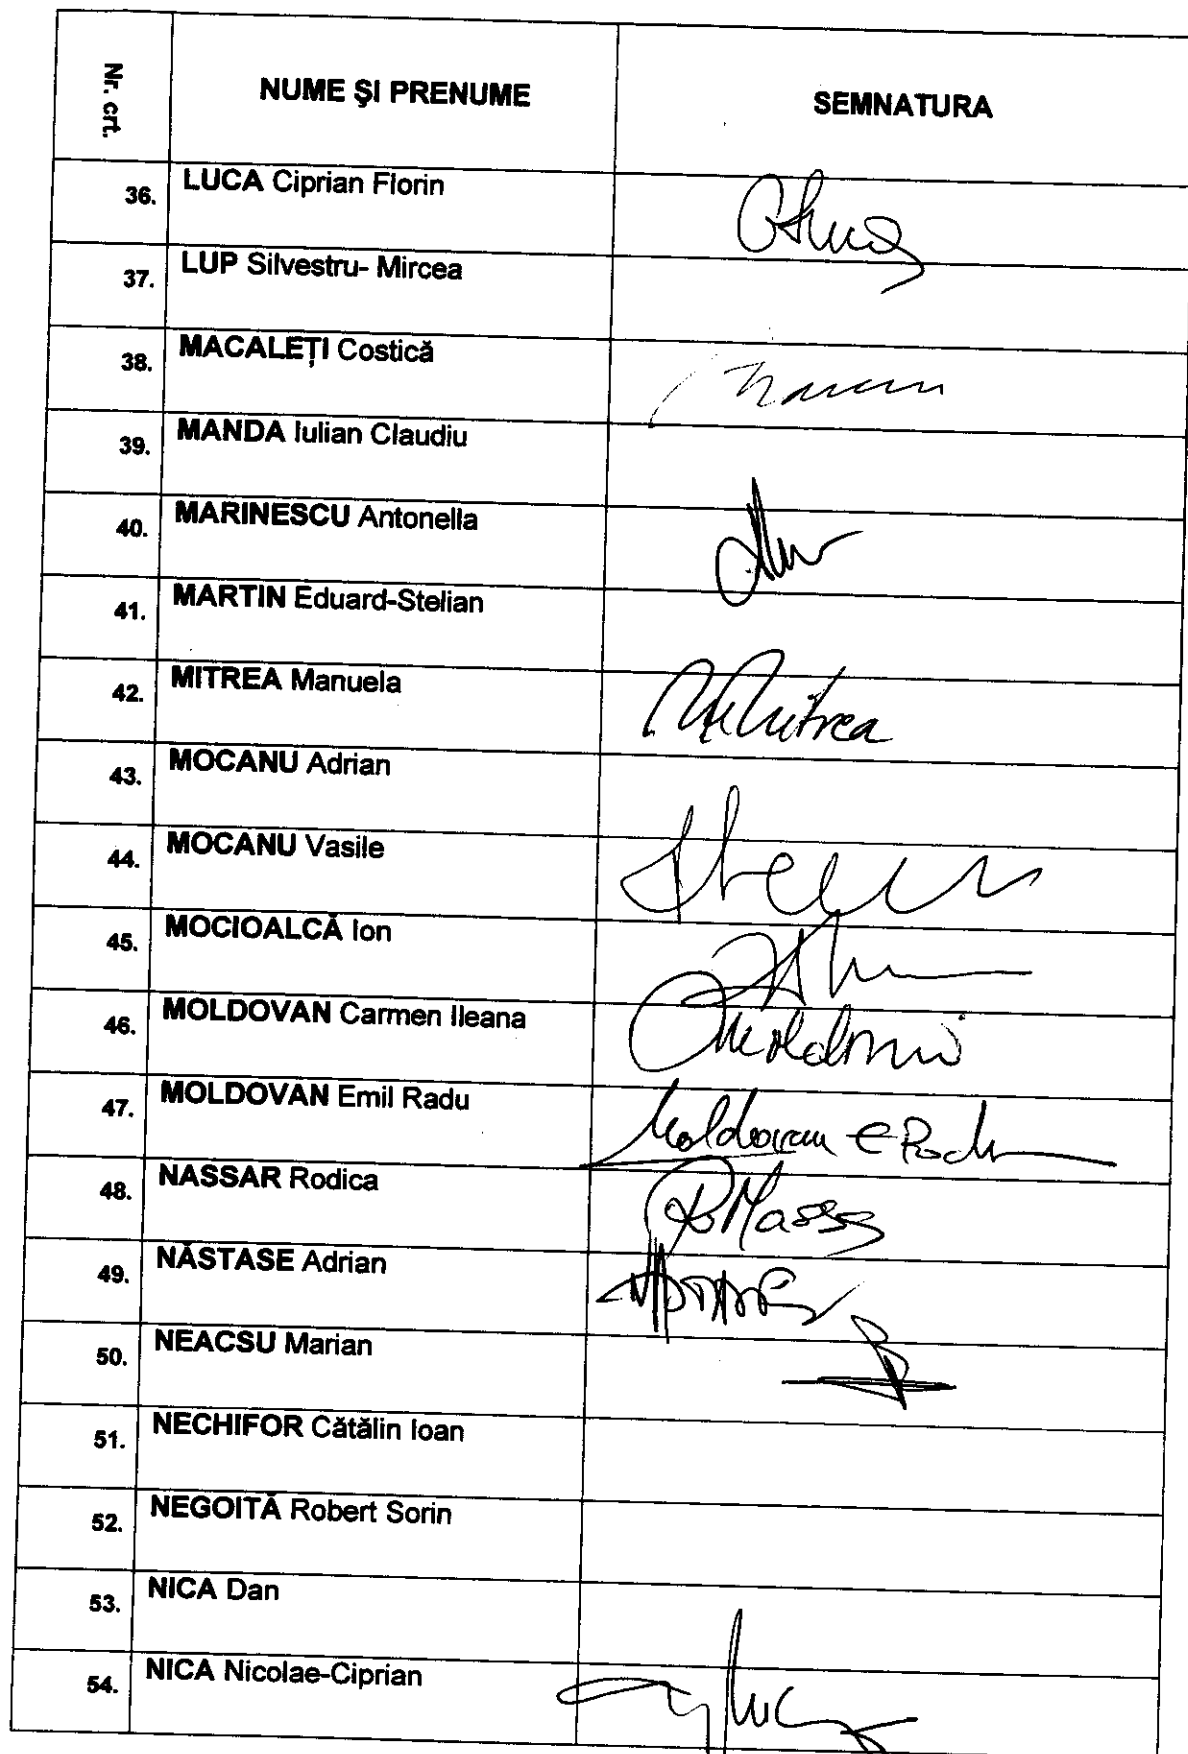 Nr. crt. NUME ŞI PRENUME SEMNATURA
36. LUCA Ciprian Florin
37. LUP Silvestru- Mircea
38. MACALEȚI Costică
39. MANDA Iulian Claudiu
40. MARINESCU Antonella
41. MARTIN Eduard-Stelian
42. MITREA Manuela Mitrea
43. MOCANU Adrian
44. MOCANU Vasile
45. MOCIOALCĂ Ion
46. MOLDOVAN Carmen Ileana
47. MOLDOVAN Emil Radu Moldovan E Radu
48. NASSAR Rodica
49. NĂSTASE Adrian
50. NEACSU Marian
51. NECHIFOR Cătălin Ioan
52. NEGOITĂ Robert Sorin
53. NICA Dan
54. NICA Nicolae-Ciprian